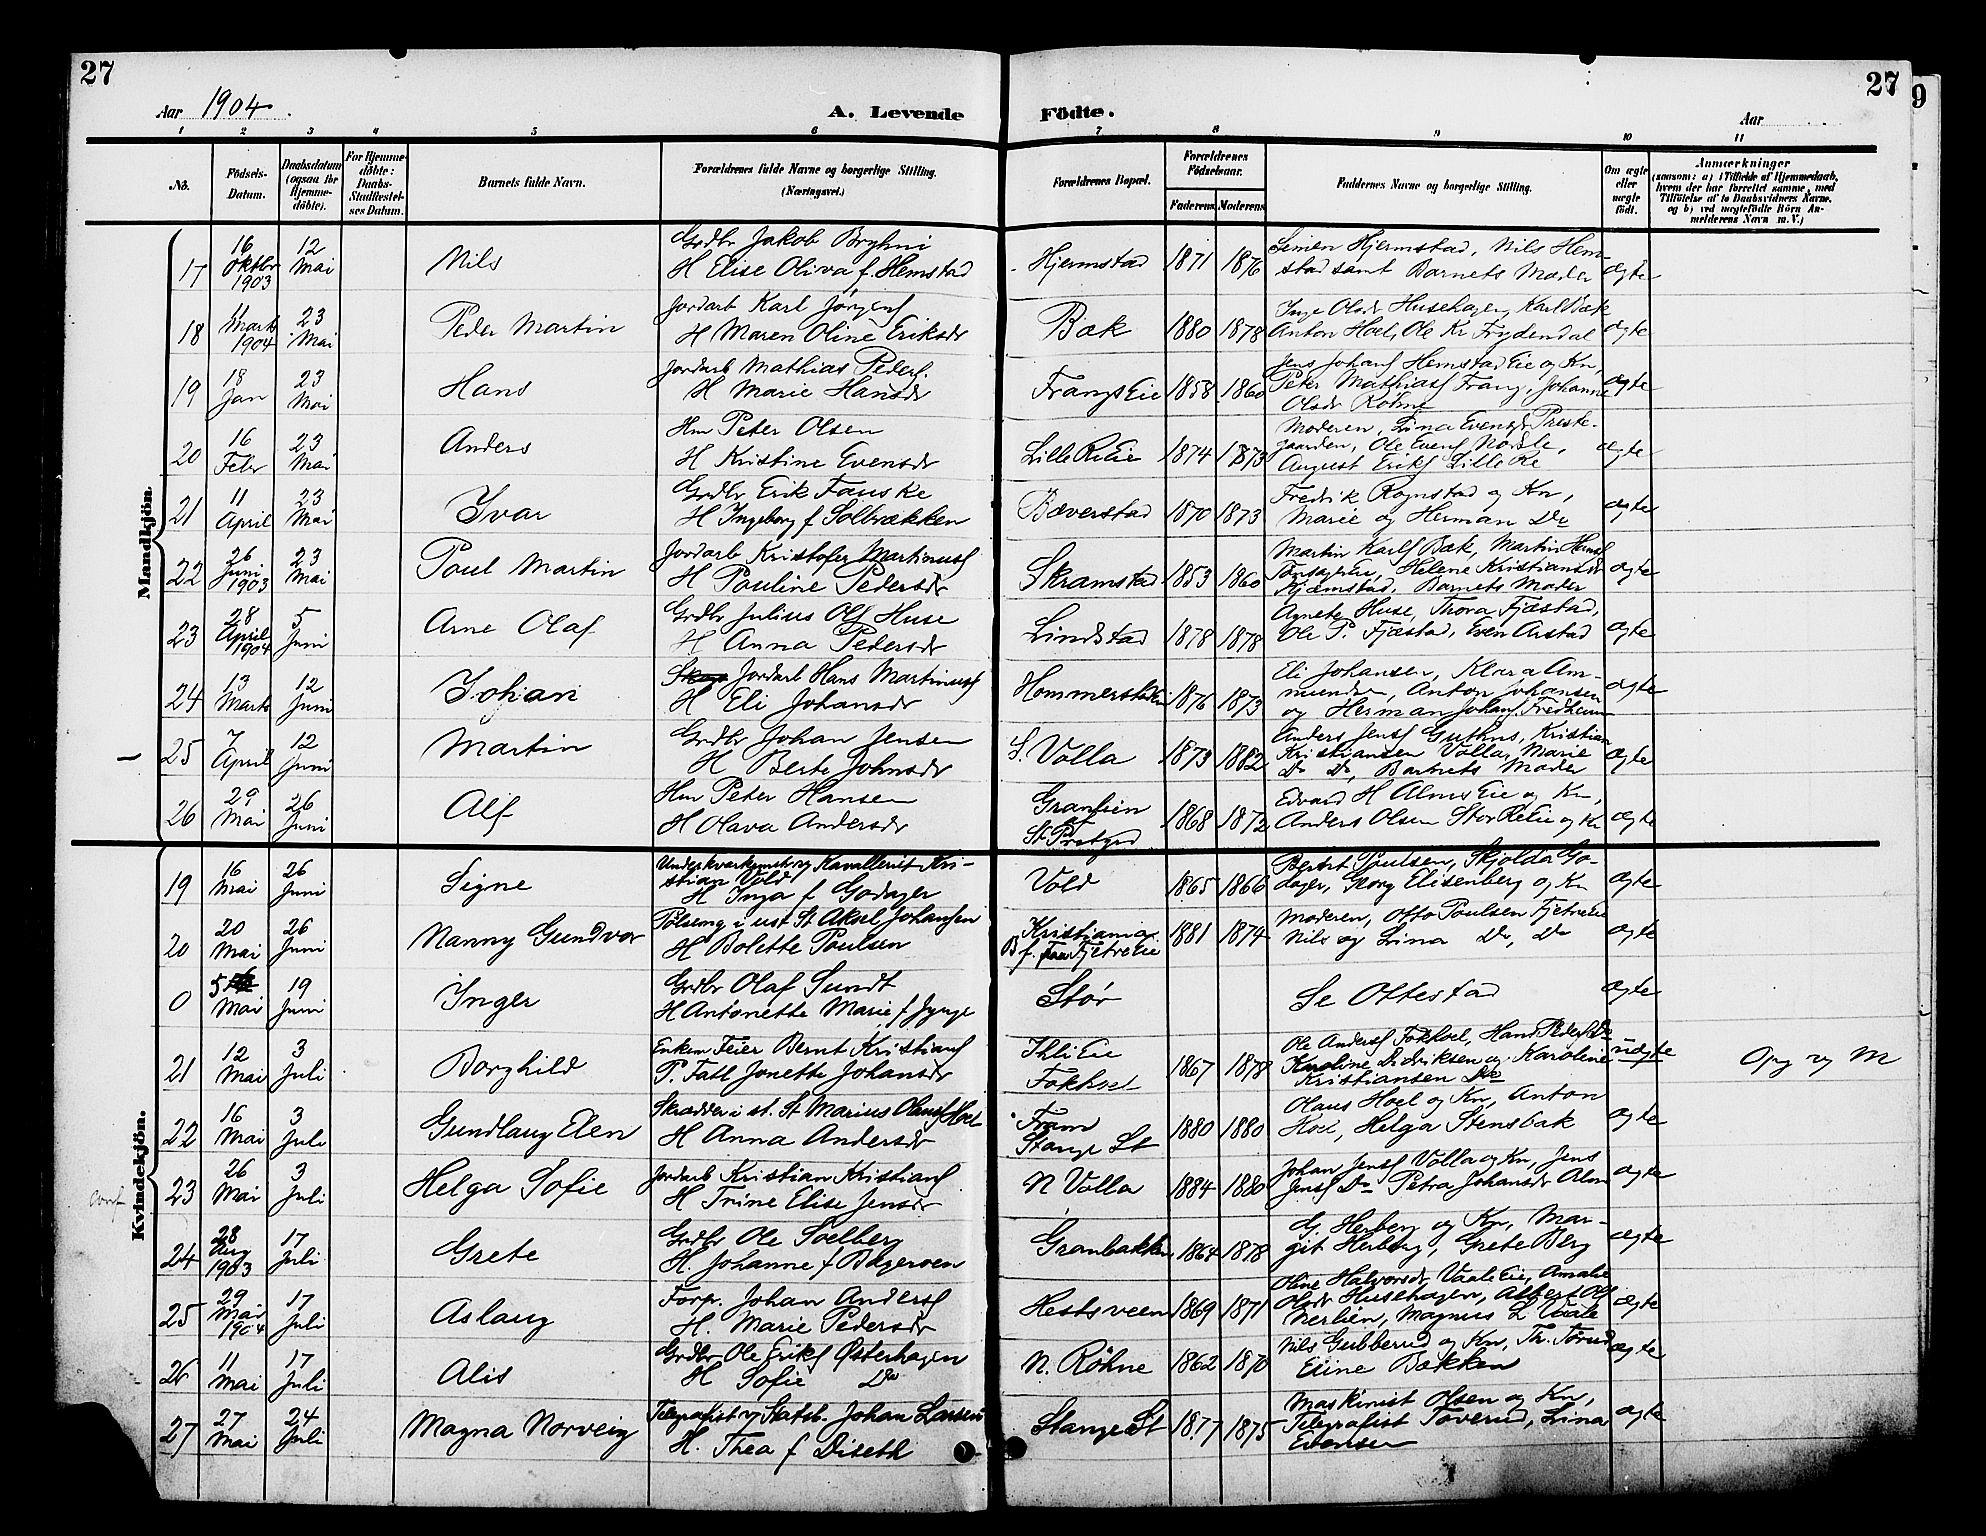 27
27
9
Aar 1904.
A. Levende
Födte.
Aar
1 2 3 4 5 6 7 8 9 10 11
No.
Födsels-Datum.
Daabsdatum (ogsaa for Hjemme-döbte).
For Hjemme-döbte: Daabs-Stadfæstelses Datum.
Barnets fulde Navn.
Forældrenes fulde Navne og borgerlige Stilling. (Næringsvei.)
Forældrenes Bopæl.
Forældrenes Födselsaar.
Faderens Moderens
Faddernes Navne og borgerlige Stilling.
Om ægte eller uægte födt.
Anmærkninger
(saasom: a) i Tilfælde af Hjemmedaab, hvem der har forrettet samme, med Tilföielse af to Daabsvidners Navne, og b) ved uægtefödte Börn Anmelderens Navn m. V.)
Mandkjön.
17 16 Oktbr 1903 12 Mai Nils Grdbr Jakob Bryhni
H Elise Oliva f. Hemstad Hjermstad 1871 1876 Simen Hjermstad, Nils Hemstad samt Barnets Moder ægte
18 11 Marts 1904 23 Mai Peder Martin Jordarb Karl Jørgens
H Maren Oline Eriksdr Bæk 1880 1878 Inge Olsdr Husehagen, Karl Bæk
Anton Hoel, Ole Kr Frydendal ægte
19 18 Jan 23 Mai Hans Jordarb Mathias Peders.
H Marie Hansdr Frangs Eie 1858 1860 Jens Johans Hemstad Eie og Kn,
Peter Mathiass Frang, Johanne
Olsdr Røhne ægte
20 16 Febr 23 Mai Anders Hm Peter Olsen
H Kristine Evensdr Lille Re Eie 1874 1873 Moderen, Lina Evensd Preste-
gaarden, Ole Evens
August Eriks Lille Re ægte
21 11 April 23 Mai Ivar Grdbr Erik Fauske
H Ingeborg f Solbrækken Bæverstad 1870 1873 Fredrik Rognstad og Kn,
Marie og Herman Do ægte
22 26 Juni 1903 23 Mai Poul Martin Jordarb Kristofer Martinuss
H Pauline Pedersdr Skramstad 1853 1860 Martin Karls Bæk, Martin Hans
Helene Kristiansdr
Hjæmstad, Barnets Moder ægte
23 28 April 1904 5 Juni Arne Olaf Grdbr Julius Ols Huse
H Anna Pedersdr Lindstad 1878 1878 Agnete Huse, Thora Fjæstad,
Ole P. Fjæstad, Even Arstad ægte
24 13 Marts 12 Juni Johan Jordarb Hans Martinuss
H Eli Johansdr Hommerstadeie 1876 1873 Eli Johansen, Klara Am-
mundsen, Anton Johansen
og Herman Johans Fredheim ægte
25 7 April 12 Juni Martin Grdbr Johan Jensen
H Berte Johnsdr S. Volla 1873 1882 Anders Jens Guthus, Kristian
Kristiansen Volla, Marie
Do Do, Barnets Moder ægte
26 29 Mai 26 Juni Alf Hm Peter Hansen
H Olava Andersdr Granlien
St. Prstgrd 1868 1872 Edvard H Alms Eie og Kn,
Anders Olsen Stor Re Eie og Kn ægte
Kvindekjön.
19 16 Mai 26 Juni Signe Underkvartermester v Kavalleriet Kri-
stian Vold
H Inga f Godager Vold 1865 1866 Bernt Poulsen, Skjolda Go-
dager, Georg Elisenberg og Kn ægte
20 20 Mai 26 Juni Nanny Gundvor Pølsemg i ust. St Aksel Johansen
H Bolette Poulsen Kristiania
B f. Fjetre Eie 1881 1874 Moderen, Otto Poulsen Fjetreeie
Nils og Lina Do, Do ægte
0 5 Mai 19 Juni Inger Grdbr Olaf Sundt
H Antonette Marie f Jynge Stør Se Ottestad ægte
21 12 Mai 3 Juli Borghild Enkem Feier Bernt Kristians
P. Fatl Jonette Johansdr Ihli Eie
Fokhol 1867 1878 Ole Anders Fokhoel, Hans Peders Do
Karoline Didriksen og Karoline
Kristiansen Do uægte Opg og M
22 16 Mai 3 Juli Gundlaug Elen Skrædder i st. St Marius Olauss Hoel
H Anna Andersdr Fram
Stange St 1880 1880 Olaus Hoel og Kn, Anton
Hoel, Helga Stensbak ægte
23 26 Mai 3 Juli Helga Sofie Jordarb Kristian Kristians
H Trine Elise Jensdr N Volla 1884 1880 Johan Jens Volla og Kn, Jens
Jens Do Petra Johansdr Alm ægte
24 28 Aug 1903 17 Juli Grete Grdbr Ole Soelberg
H. Johanne f Bageroen Granbakken 1864 1878 G. Herberg og Kn, Mar-
git Herberg, Grete Berg ægte
25 29 Mai 1904 17 Juli Aslaug Forp. Johan Anders
H. Marie Pedersdr Hestsveen 1869 1871 Oline Halvorsdr Vaale Eie, Amalie
Olsdr Husehagen, Albert Ols
Nerlien, Magnus L Vaale ægte
26 11 Mai 17 Juli Alis Grdbr Ole Eriks Østerhagen
H Sofie Do N. Røhne 1862 1870 Nils Gubberud og Kn, Th. Torud
Eline Bækken ægte
27 27 Mai 24 Juli Magna Norveig Telegrafist v Statsb. Johan Larsen
H. Thea f Diseth Stange St 1877 1875 Maskinist Olsen og Kn,
Telegrafist Toverud, Lina
Evensen ægte